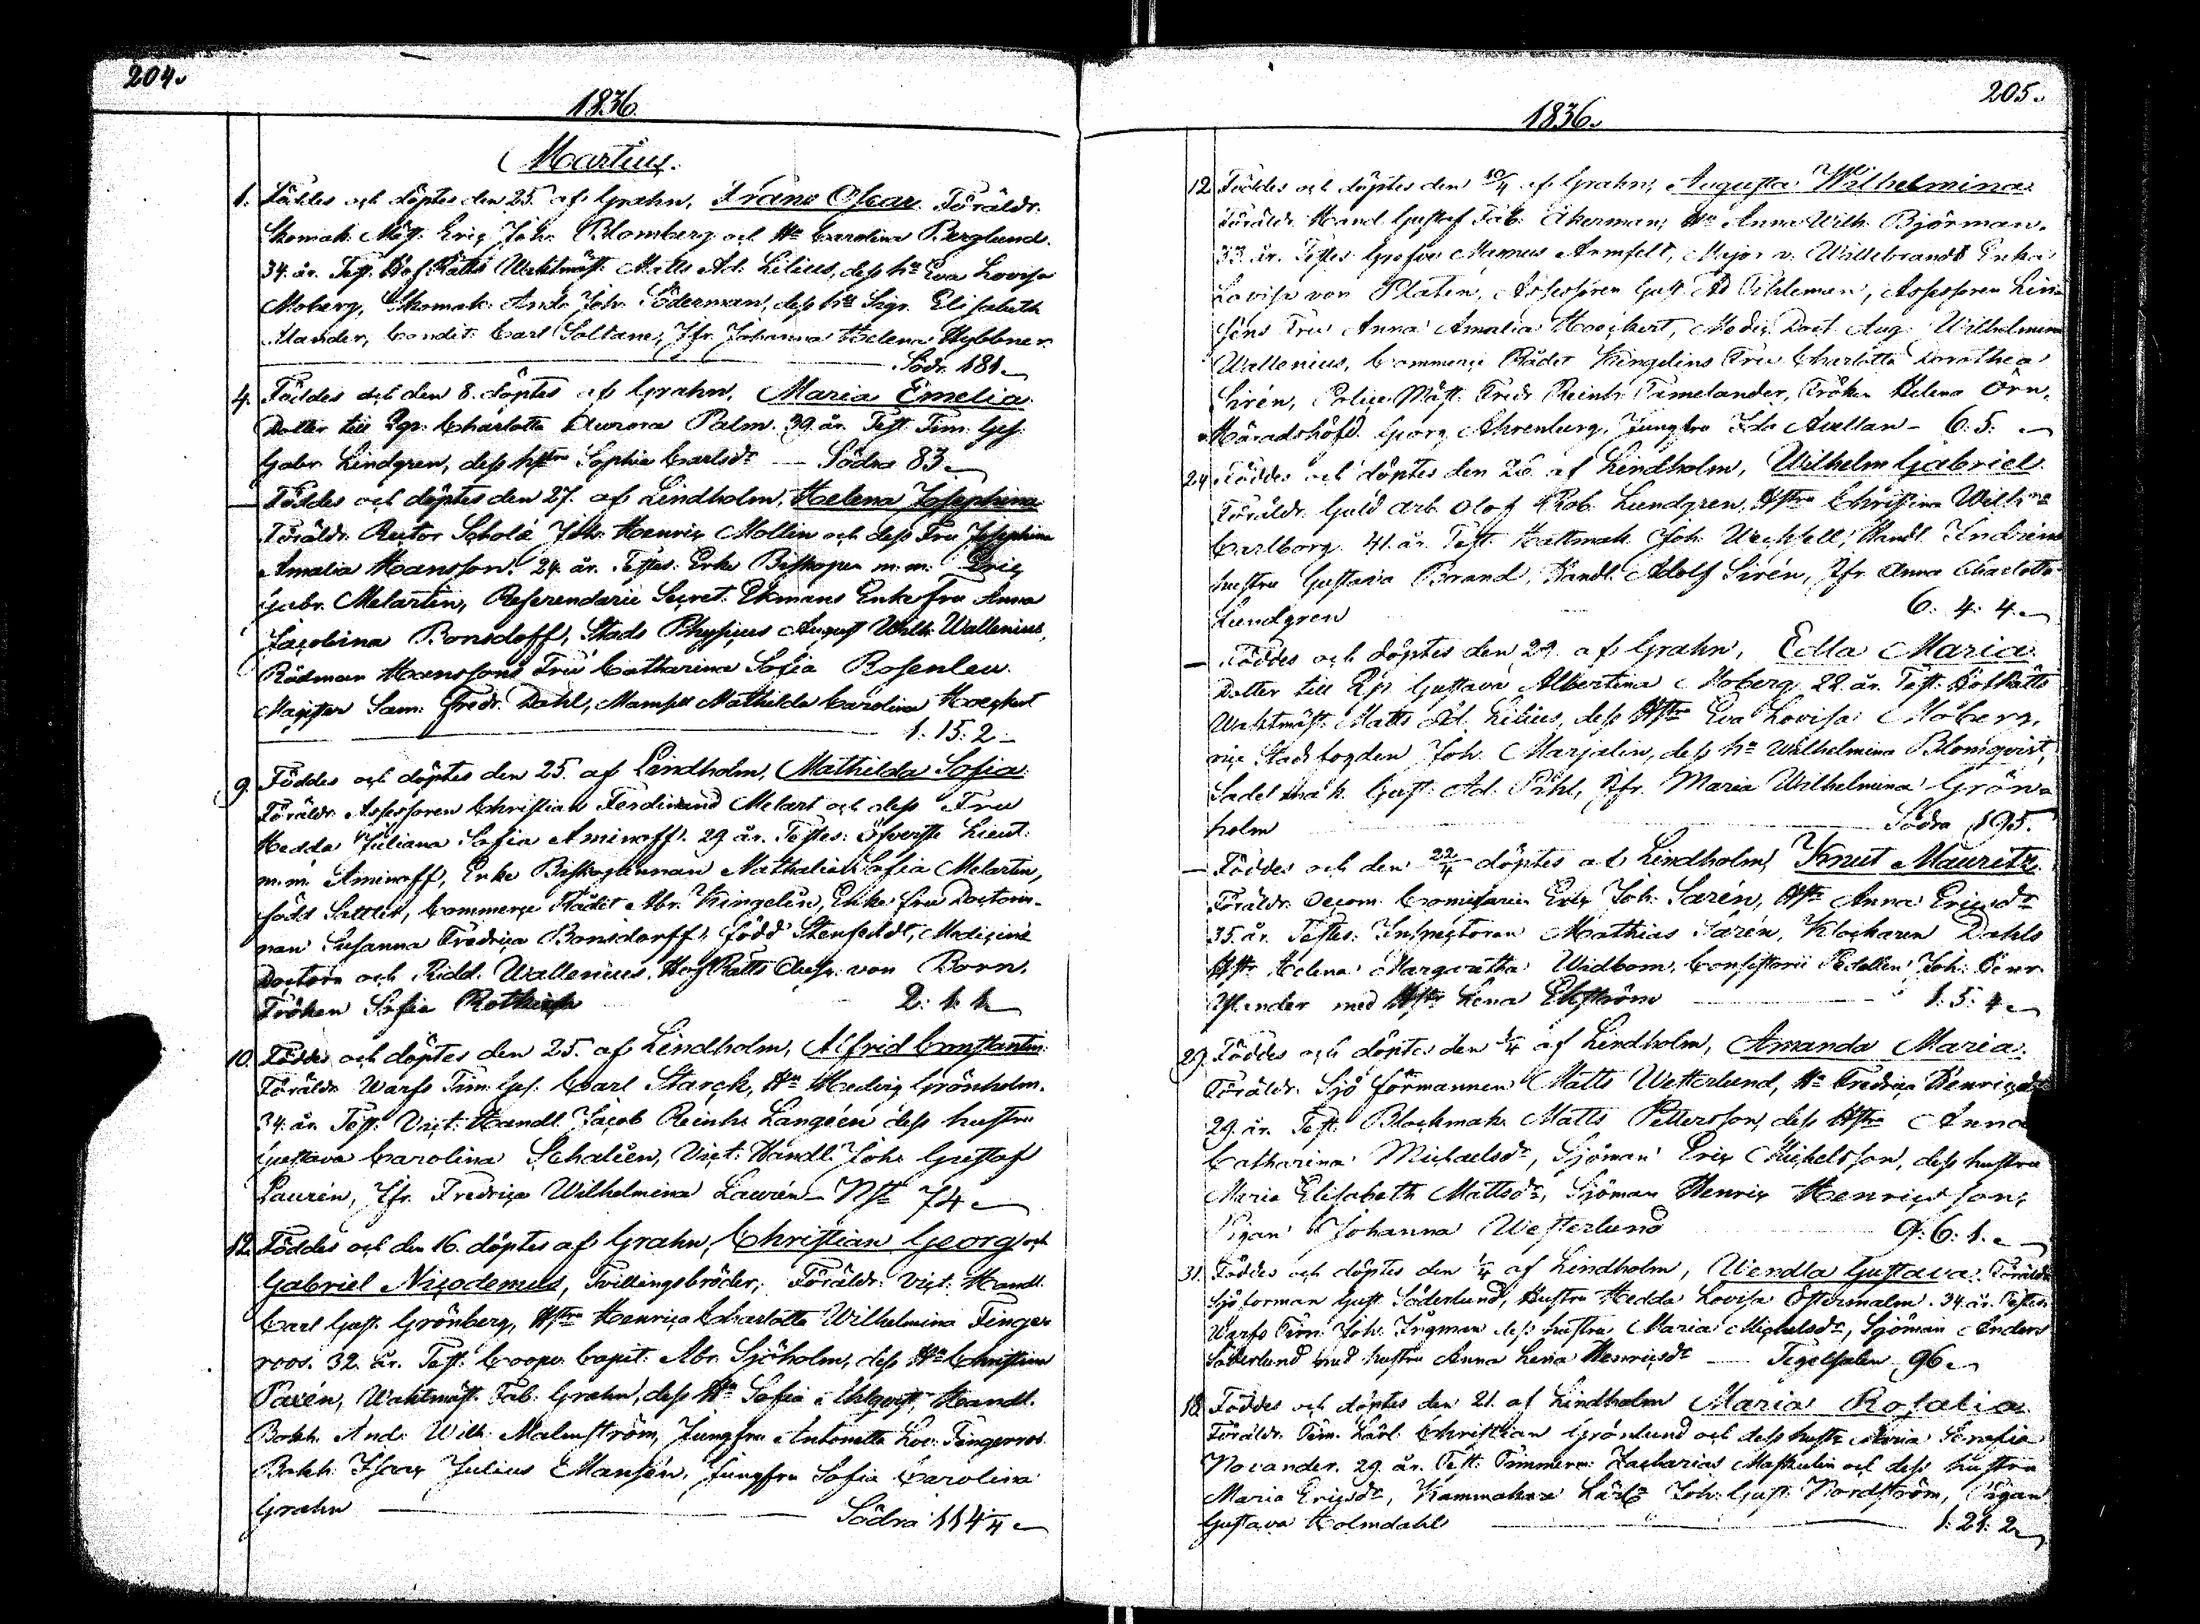 204.
1836.
Martius.
1. Föddes och döptes den 25. af Grahn, Frans Oscar. Föräldr.
Skomak. Mäst. Eric Joh. Blomberg och Hu Carolina Berglund.
34. år. Test. Hof Rätts Waktmäst. Matts Ad. Lilius, dess hu Eva Lovisa
Moberg, Skomak. And. Joh. Söderman, dess hu Sigr. Elisabeth
Alander, Condit. Carl Soltane, Jfr. Johanna Helena Hybbner
Södr. 181
4. Föddes och den 8. döptes af Grahn, Maria Emelia.
Dotter till Charlotta Aurora Palm. 39. år. Test. Tim. Ges.
Gabr. Lindgren, dess hustru Sophia Carlsdr Södra 83
— Föddes och döptes den 27. af Lindholm, Helena Josephina
Föräldr. Rector Scholæ Joh. Henric Mollin och dess Fru Josephina
Amalia Hansson. 24. år. Testes: Erke Biskopen m.m. Eric
Gabr. Melartin, Referendarie Secret. Ekmans Enkefru Anna
Jacobina Bonsdoff, Stads Physicus August Wilh. Wallenius,
Rådman Hanssons Fru Catharina Sofia Rosenlew.
Magister Sam. Fredr. Dahl, Mamsell Mathilda Carolina Hoeckert
1. 15. 2
9. Föddes och döptes den 25. af Lindholm, Mathilda Sofia.
Föräldr. Assessoren Christian Ferdinand Melart och dess Fru
Hedda Juliana Sofia Aminoff. 29 år. Testes: Öfverste Lieut.
m.m. Aminoff, Erke Biskopinnan Nathalia Sofia Melartin,
född Commerce Rådet Abr. Kingelin, Enke fru Doctorin-
nan Susanna Fredrica Bonsdorff, född Medicine
Doctorn och Ridd. Wallenius, Hof Rätts von Born,
Fröken Sofia Rotkirch 2: 1. 1.
10. Föddes och döptes den 25. af Lindholm, Alfrid Constantin.
Föräldr. Warfs Tim. Ges. Carl Starck, Hu Hedvig Grönholm.
34. år. Test. Vict. Handl. Jacob Reinh. Langéen dess hustru
Gustava Carolina Schalien, Vict. Handl. Joh. Gustaf
Laurén, Jfr. Fredrica Wilhelmina Laurén 74
12. Föddes och den 16. döptes af Grahn, Christian Georg och
Gabriel Nicodemus, Tvillingsbröder, Föräldr. Vict. Handl.
Carl Gust. Grönberg, Hstru Henrica Charlotta Wilhelmina Finger
roos. 32. år. Test. Coop. Capit. Abr. Sjöholm, dess Hu Christina
Paxén, Waktmäst. Fab. Grahn, dess Hu Sofia Handl.
Bokh. And. Wilh. Malmström, Jungfru Antonetta Lov. Fingerroos
Bokh. Isac Julius Mansén, Jungfru Sofia Carolina
Grahn Södra 114
205.
1836.
12. Föddes och döptes den 10/4 af Grahn, Augusta Wilhelmina.
Föräldr. Handl. Gustaf Fab. Åkerman, Hu Anna Wilh. Björman.
33. år. Testes: Grefve Magnus Armfelt, Major v. Willebrands Enka
Lovisa von Platen, Assessoren Gust. Ad. Assessoren
Fru Anna Amalia Hoeckert, Medic. Doct. Aug. Wilhelm
Wallenius, Commerce Rådet Kingelins Fru Charlotta Dorothea
Sirén, Police Mäst. Fredr. Reinh. Tamelander, Fröken Helena Örn,
Häradshöfd. Georg Ahrenberg, Jungfru Ida Avellan - 6. 5.
24. Föddes och döptes den 26. af Lindholm, Wilhelm Gabriel.
Föräldr. Guld arb. Olof Rob. Lundgren, Hstru Christina
Carlborg. 41. år. Test. Hattmak. Joh. Wechsell, Handl.
hustru Gustava Brand, Handl. Adolf Sirén, Jfr. Anna Charlotta
Lundgren 6. 4. 4.
— Föddes och döptes den 29. af Grahn, Edla Maria.
Dotter till Gustava Albertina Moberg 22. år. Test. Hof Rätts
Waktmäst. Matts Ad. Lilius, dess Hstru Eva Lovisa Moberg,
vice Stadsfogden Joh. Marjalin, dess hu Wilhelmina Blomqvist,
Sadelmak. Gust. Ad. Pihl, Jfr. Maria Wilhelmina Grön-
holm Södra 195.
— Föddes och den 22/4 döptes af Lindholm, Knut Mauritz.
Föräldr. Oecon. Comissarien Eric Joh. Sarén, Hstru Anna Ericsdr
35. år. Testes: Inspectoren Mathias Sarén, Klockaren Dahls
Hstru Helena Margaretha Widbom, Consistorii Pedellen Joh. Henr.
med Hstru Lena Ekström 1. 5. 4
29. Föddes och döptes den 4/4 af Lindholm, Amanda Maria.
Föräldr. Sjöförmannen Matts Wetterlund, Hu Fredrica Henricsdr
29. år. Test. Blockmak. Matts Pettersson, dess Hstru Anna
Catharina Michaelsdr, Sjöman Eric Michelsson, dess hustru
Maria Elisabeth Mattsdr, Sjöman Henric Henricsson,
Pigan Johanna Westerlund 9. 6. 1.
31. Föddes och döptes den 4/4 af Lindholm, Wendla Gustava. Föräldr.
Sjöforman Gust. Söderlund, Hustru Hedda Lovisa Östermalm. 34. år. Testes
Warfs Tim. Joh. Ingman dess hustru Maria Michelsdr, Sjöman Anders
Söderlund med hustru Anna Lena Henricsdr Tegelsalen 96.
18. Föddes och döptes den 21. af Lindholm Maria Rosalia
Föräldr. Tim. Karl. Christian Grönlund och dess hustru Maria Serafia
Novander. 29. år. Test. Timmerm. Zacharias Maskulin och dess hustru
Maria Ericsdr, Kammakare Lärl. Joh. Gust. Nordström, Pigan
Gustava Holmdahl 1. 21. 2